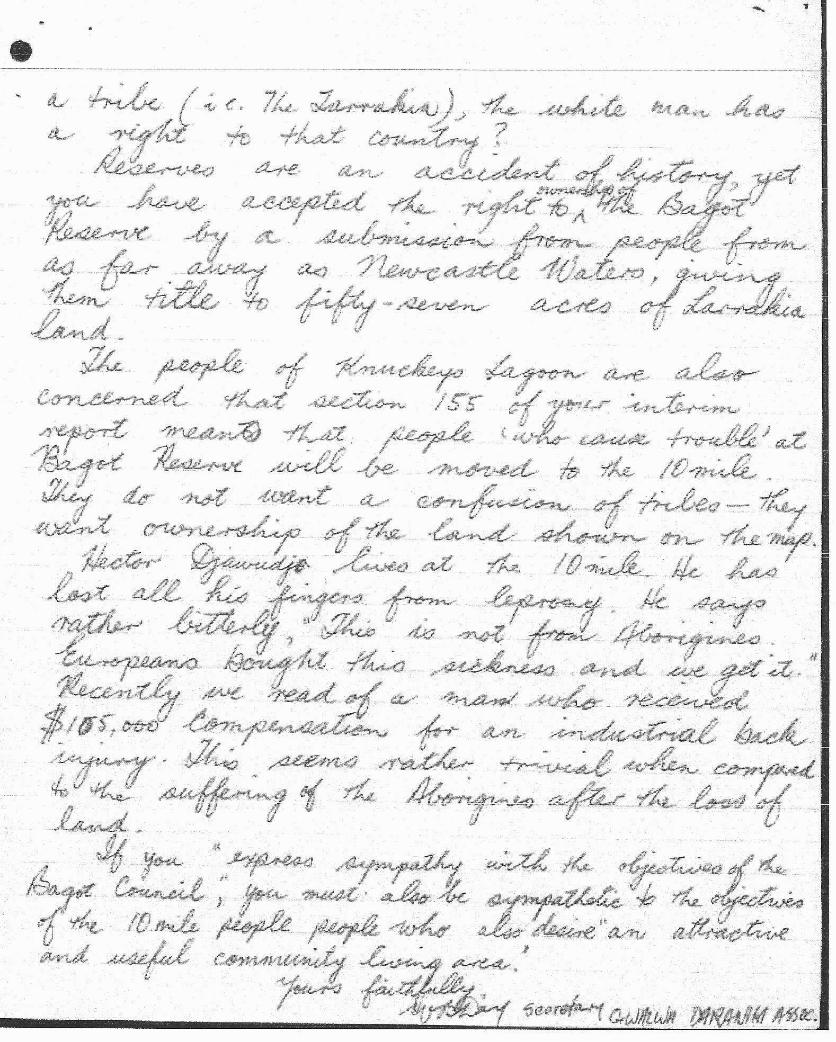 a tribe (i e. The Larrakia), the white man has
a right to that country?
Reserves are an accident of history, yet
you have accepted the right to ^ ownership of the Bagot
Reserve by a submission from people from
as far away as Newcastle Waters, giving
them title to fifty-seven acres of Larrakia
land.
The people of Knuckeys Lagoon are also
concerned that section 155 of your interim
report means that people 'who cause trouble' at
Bagot Reserve will be moved to the 10 mile.
They do not want a confusion of tribes — they
want ownership of the land shown on the map.
Hector Djawudjo lives at the 10 mile. He has
lost all his fingers from leprosy. He says
rather bitterly, "This is not from Aborigines.
Europeans bought this sickness and we get it."
Recently we read of a man who received
$105,000 compensation for an industrial back
injury. This seems rather trivial when compared
to the suffering of the Aborigines after the loss of
land.
If you "express sympathy with the objectives of the
Bagot Council", you must also be sympathetic to the objectives
of the 10 mile people people who also desire "an attractive
and useful community living area."
Yours faithfully
WB Day secretary GWALWA DARANIKI ASSOC.